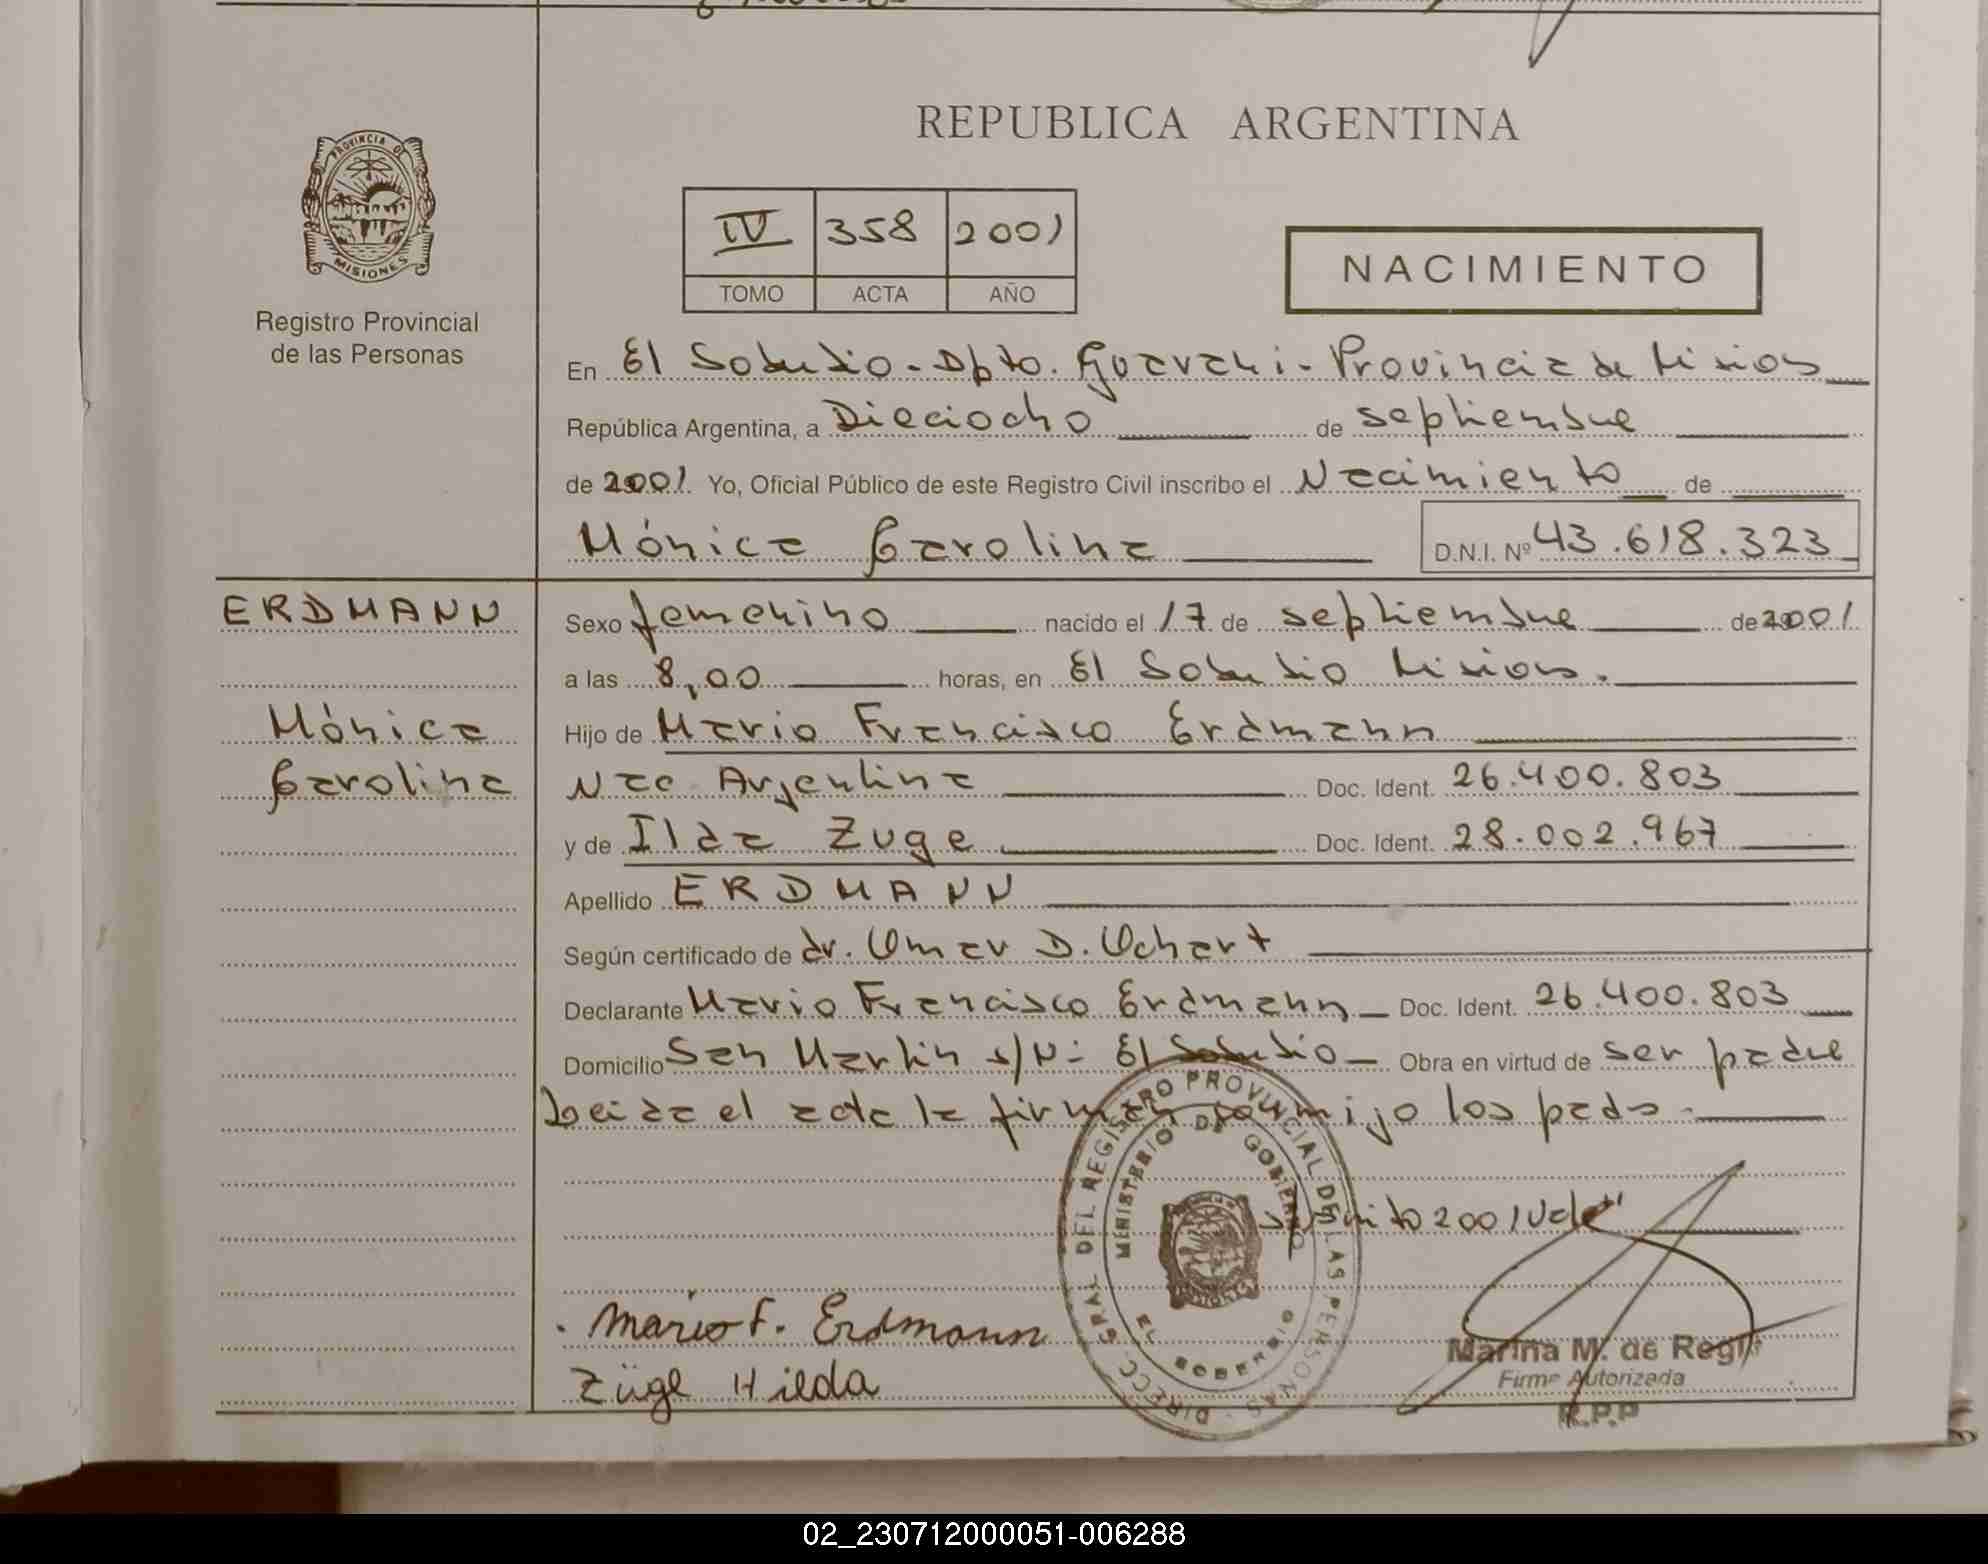 REPUBLICA ARGENTINA
PROVINCIA DE
MISIONES
Registro Provincial
de las Personas
IV 358 2001
TOMO ACTA AÑO
NACIMIENTO
En El Soberbio - Dpto. Guarani - Provincia de Misiones
República Argentina, a Dieciocho de septiembre
de 2001 Yo, Oficial Público de este Registro Civil inscribo el Nacimiento de
Mónica Carolina D.N.I. Nº 43.618.323
ERDMANN
Mónica
Carolina
Sexo femenino nacido el 17 de septiembre de 2001
a las 8,00 horas, en El Soberbio Misiones.
Hijo de Mario Francisco Erdmann
Nac Argentina Doc. Ident. 26.400.803
y de Ilda Zuge Doc. Ident. 28.002.967
Apellido ERDMANN
Según certificado de dr. Omar D. Ochart
Declarante Mario Francisco Erdmann Doc. Ident. 26.400.803
Domicilio San Martin s/Nº El Soberbio Obra en virtud de ser padre
Leida el acta la firman conmigo los padres
2001 Vale"
Mario F. Erdmann
Züge Hilda
DIRECC. GRAL DEL REGISTRO PROVINCIAL DE LAS PERSONAS
MINISTERIO DE GOBIERNO
EL SOBERBIO
Marina M. de Regi
Firma Autorizada
R.P.P
02_230712000051-006288